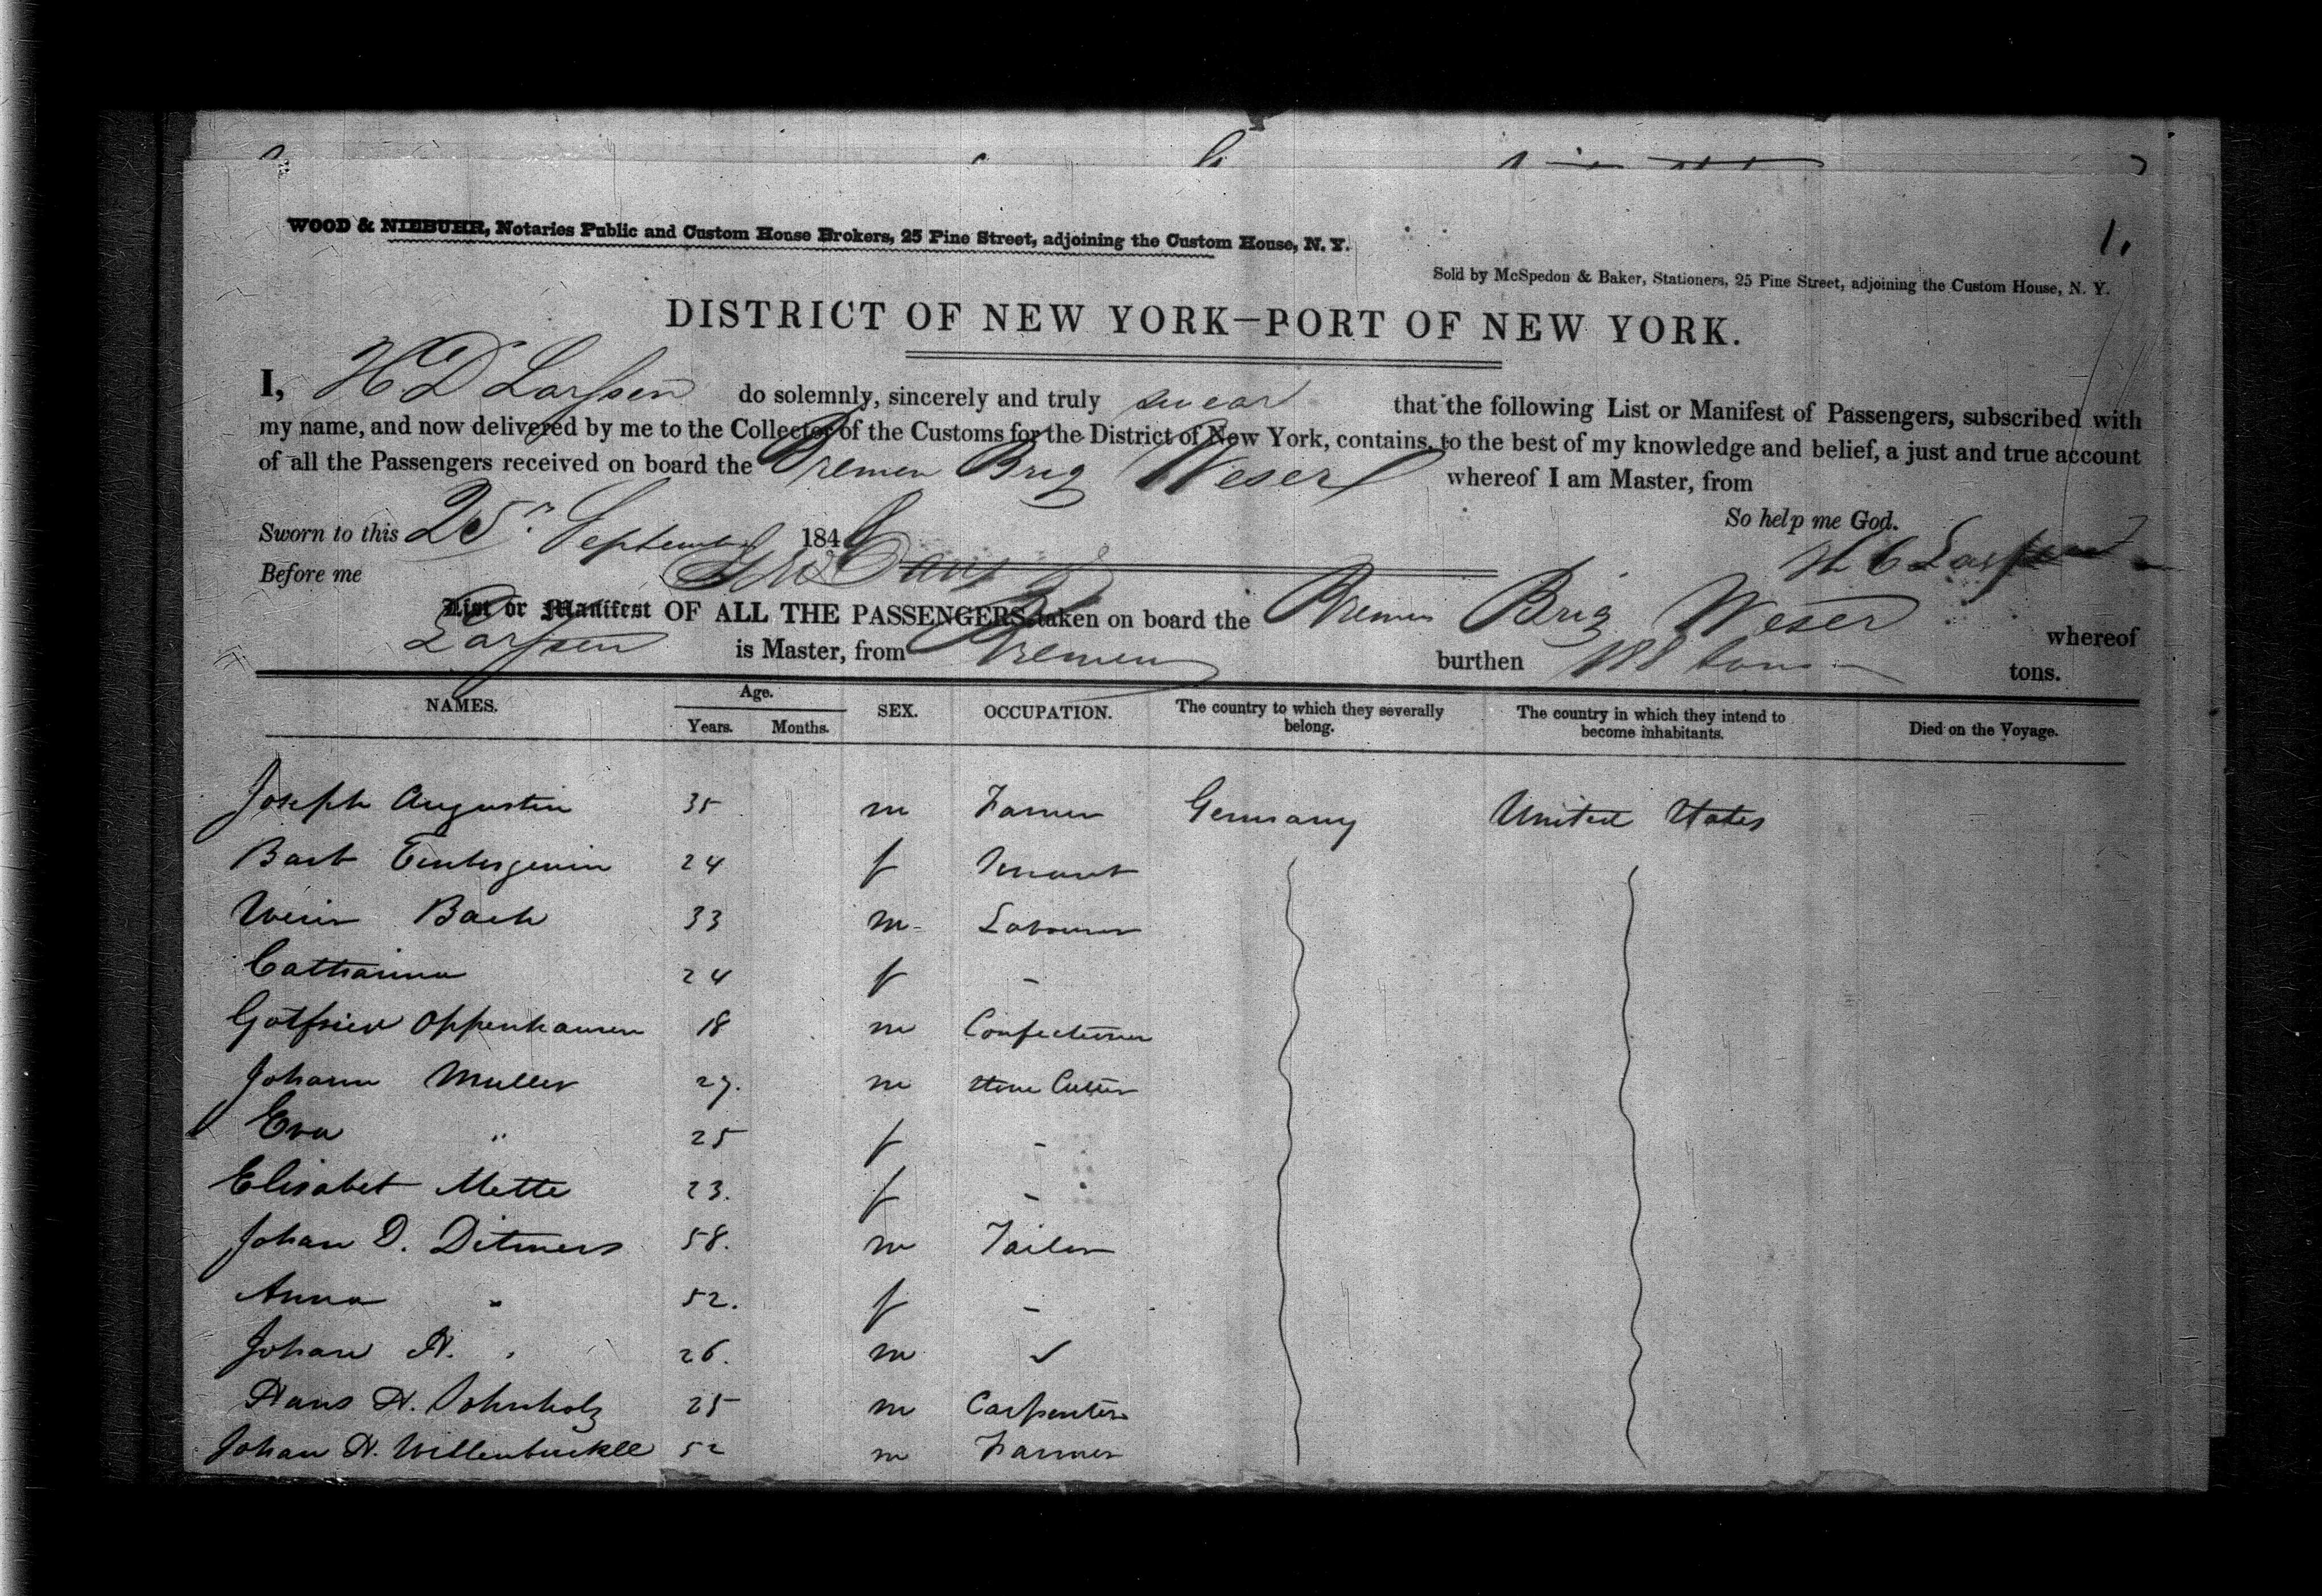 1.
WOOD & NIEBUHR, Notaries Public and Custom House Brokers, 25 Pine Street, adjoining the Custom House, N. Y.
Sold by McSpedon & Baker, Stationers, 25 Pine Street, adjoining the Custom House, N. Y.
DISTRICT OF NEW YORK—PORT OF NEW YORK.
I, H D Larssen do solemnly, sincerely and truly swear that the following List or Manifest of Passengers, subscribed with
my name, and now delivered by me to the Collector of the Customs for the District of New York, contains, to the best of my knowledge and belief, a just and true account
of all the Passengers received on board the Bremen Brig Weser whereof I am Master, from
So help me God.
Sworn to this 25 September 184
Before me
List or Manifest OF ALL THE PASSENGERS taken on board the Bremen Brig Weser whereof
Larssen is Master, from Bremen burthen 188 tons tons.
NAMES. Age. Years. Months. SEX. OCCUPATION. The country to which they severally belong. The country in which they intend to become inhabitants. Died on the Voyage.
Joseph Augustin 35 m Farmer Germany United States
Barb 24 f Servant
Bach 33 m Labourer
Catharina 24 f -
Gotfried Oppenhausen 18 m Confectioner
Johann Muller 27. m Stone Cutter
Eva " 25 f -
Elisabet Mette 23. f -
Johan D. Ditmers 58. m Tailor
Anna " 52. f -
Johan H. " 26. m ✓
Hans H. 25 m Carpenter
Johan H. Willenbuckle 52 m Farmer